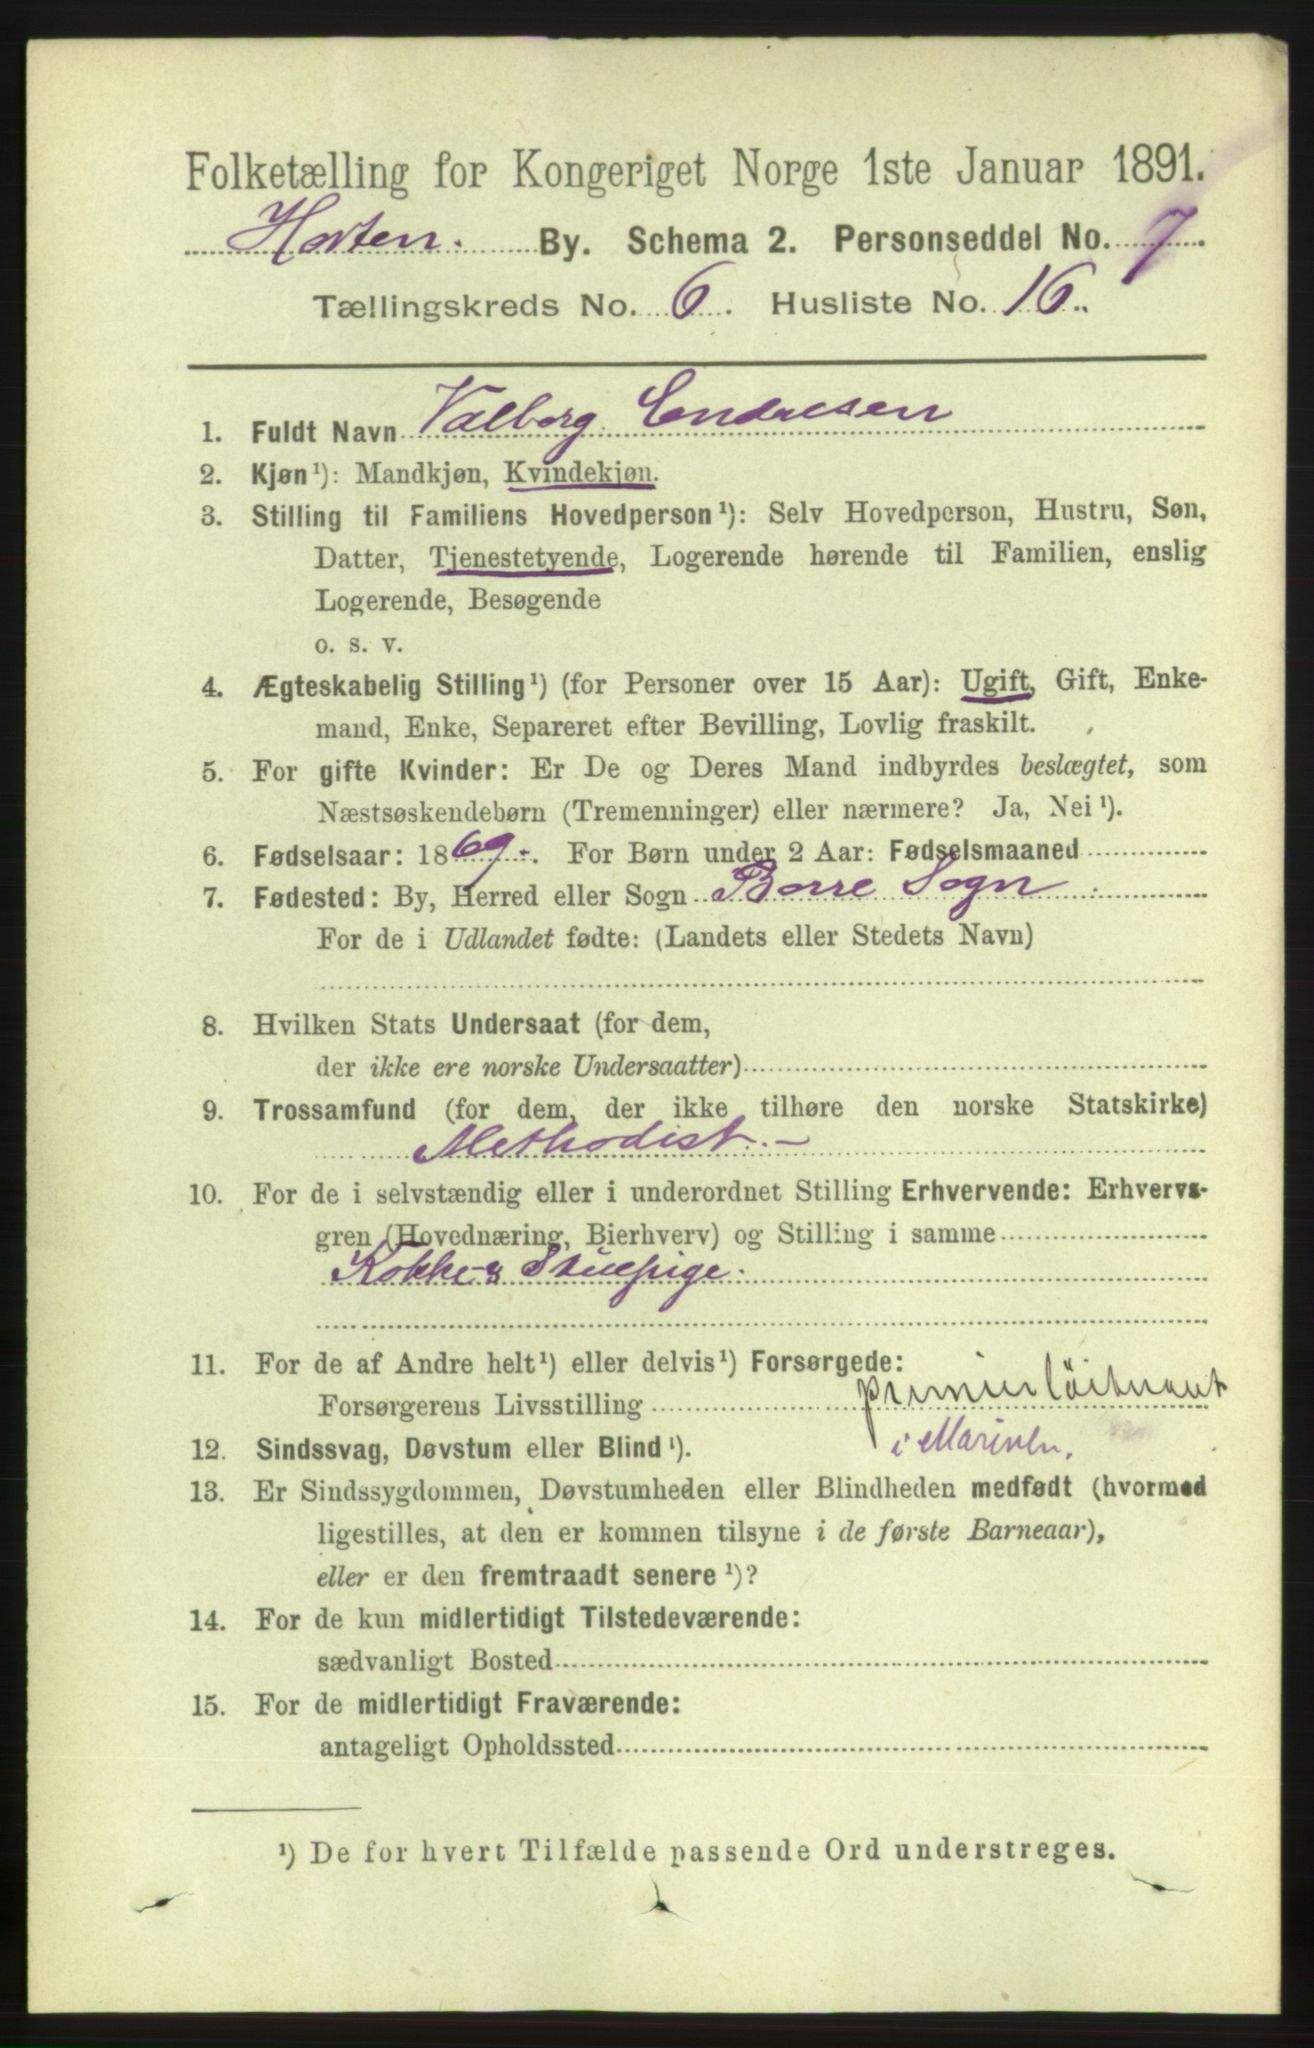 Folketælling for Kongeriget Norge 1ste Januar 1891.
Horten. By. Schema 2. Personseddel No. 7.
Tællingskreds No. 6. Husliste No. 16.
1. Fuldt Navn Valborg Endresen
2. Kjøn¹): Mandkjøn, Kvindekjøn.
3. Stilling til Familiens Hovedperson¹): Selv Hovedperson, Hustru, Søn,
Datter, Tjenestetyende, Logerende hørende til Familien, enslig
Logerende, Besøgende
o. s. v.
4. Ægteskabelig Stilling¹) (for Personer over 15 Aar): Ugift, Gift, Enke-
mand, Enke, Separeret efter Bevilling, Lovlig fraskilt.
5. For gifte Kvinder: Er De og Deres Mand indbyrdes beslægtet, som
Næstsøskendebørn (Tremenninger) eller nærmere? Ja, Nei¹).
6. Fødselsaar: 1869. For Børn under 2 Aar: Fødselsmaaned
7. Fødested: By, Herred eller Sogn Borre Sogn
For de i Udlandet fødte: (Landets eller Stedets Navn)
8. Hvilken Stats Undersaat (for dem,
der ikke ere norske Undersaatter)
9. Trossamfund (for dem, der ikke tilhøre den norske Statskirke)
Methodist. -
10. For de i selvstændig eller i underordnet Stilling Erhvervende: Erhvervs-
gren (Hovednæring, Bierhverv) og Stilling i samme
Kokke- & Stuepige.
11. For de af Andre helt¹) eller delvis¹) Forsørgede:
Forsørgerens Livsstilling premierløitnant
i Marinen.
12. Sindssvag, Døvstum eller Blind¹).
13. Er Sindssygdommen, Døvstumheden eller Blindheden medfødt (hvormed
ligestilles, at den er kommen tilsyne i de første Barneaar),
eller er den fremtraadt senere¹)?
14. For de kun midlertidigt Tilstedeværende:
sædvanligt Bosted
15. For de midlertidigt Fraværende:
antageligt Opholdssted
¹) De for hvert Tilfælde passende Ord understreges.